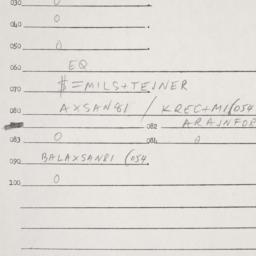 030 0
040 0
050 0
060 EQ
070 $=MILS+TEJNER
080 AXSAN81 / KREC+MI(054
082 ARAJNFOR
083 0 084 0
090 BALAXSAN81 (054
100 0